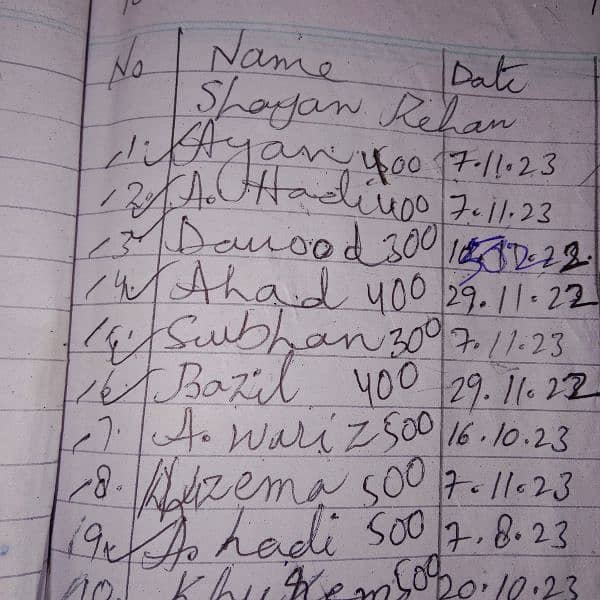 No Name Date
Shayan Rehan
1. Ayan 400 7.11.23
2. A. Hadi 400 7.11.23
3. Dawood 300
4. Ahad 400 29.11.22
5. Subhan 300 7.11.23
6. Bazil 400 29.11.22
7. A. Wariz 500 16.10.23
8. Huzema 500 7.11.23
9. A. hadi 500 7.8.23
500 20.10.23